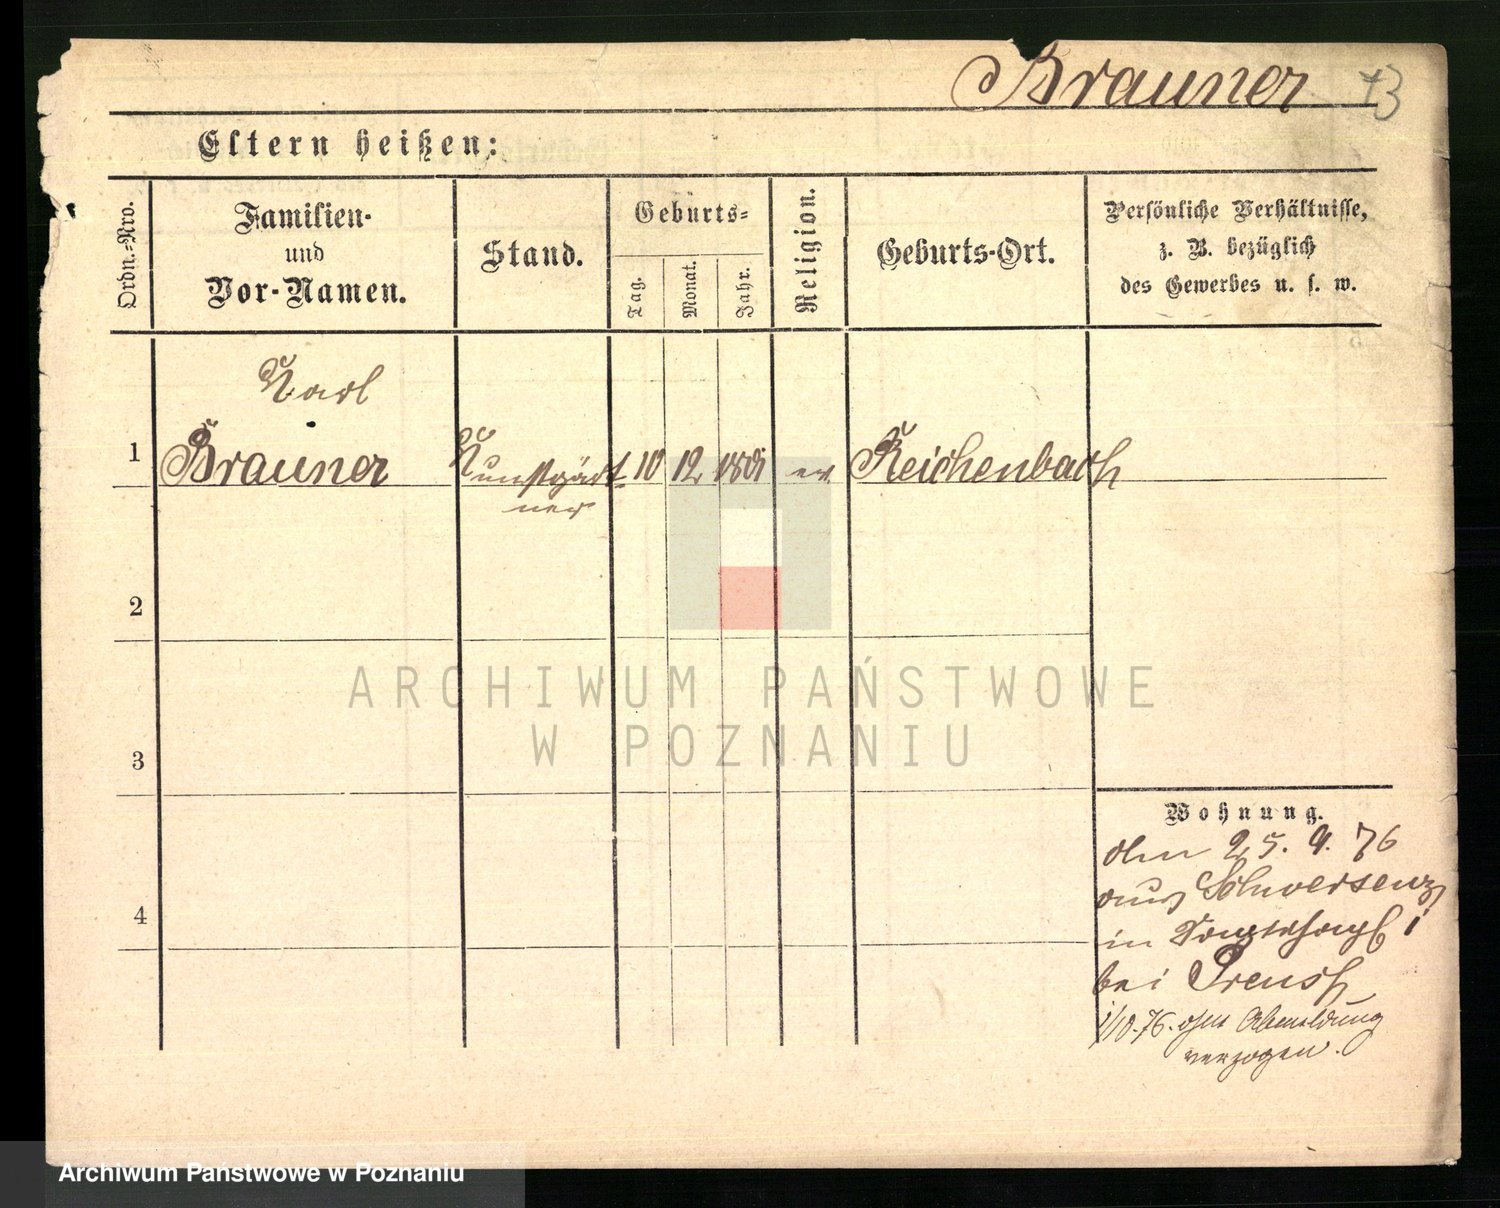 Brauner
Eltern heißen:
Ordn.-Nro.
Familien-
und
Vor-Namen.
Stand.
Geburts-
Tag.
Monat.
Jahr.
Religion.
Geburts-Ort.
Persönliche Verhältnisse,
z. B. bezüglich
des Gewerbes u. s. w.
Karl
1 Brauner Kunstgärt- 10 12 ev. Reichenbach
ner
2
3
4
Wohnung.
25. 9. 76
aus Schwersenz
in
bei
1/10. 76. ohne Abmeldung
verzogen.
ARCHIWUM PAŃSTWOWE
W POZNANIU
Archiwum Państwowe w Poznaniu